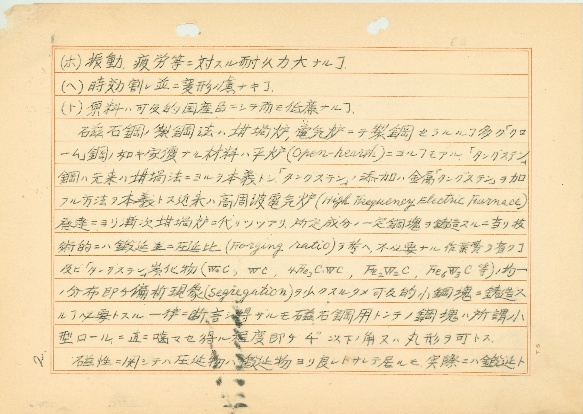 (ホ) 振動、疲労等ニ対スル耐久力大ナルヿ.
(ヘ) 時効割レ並ニ変形ノ虞ナキヿ.
(ト) 原料ハ可及的国産品ニシテ而モ低廉ナルヿ.
石磁石鋼ノ製鋼法ハ坩堝炉、電気炉ニテ製鋼セラルルヿ多ク「クロ
ーム」鋼ノ如キ安価ナル材料ハ平炉(Open-hearth)ニヨルヿモアル.「タングステン」
鋼ハ元来ハ坩堝法ニヨルヲ本義トシ「タングステン」ノ添加ハ金属「タングステン」ヲ加
フル方法ヲ本義トス近来ハ高周波電気炉(High Frequency Electric Furnace)
発達ニヨリ漸次坩堝炉ニ代リツツアリ、所定成分ノ一定鋼塊ヲ鋳造スルニ当リ技
術的ニハ鍛延並ニ圧延比(Forging ratio)ヲ考ヘ、不必要ナル作業ヲ省クヿ
及ビ「タングステン」炭化物(W₂C, WC, 4Fe₃C·WC, Fe₃W₃C 等)ノ均一
ノ分布即チ偏析現象(Segregation)ヲ少クスルタメ可及的小鋼塊ニ鋳造ス
ルヿ必要トスル 一律ニ断言ハ得ザルモ磁石鋼用トシテノ鋼塊ハ所謂小
型ロールニ直ニ噛マセ得ル程度即チ 4" 以下ノ角又ハ丸形ヲ可トス.
磁性ニ関シテハ圧延物ハ鍛延物ヨリ良シトサレテ居ルモ、実際ニハ鍛延ト
2